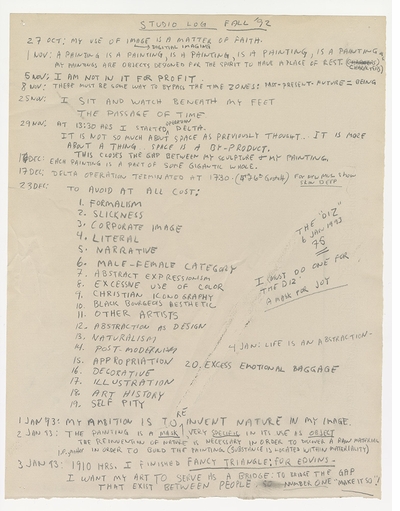 STUDIO LOG FALL 92
27 OCT: MY USE OF IMAGE IS A MATTER OF FAITH.
1 NOV: A PAINTING IS A PAINTING, IS A PAINTING, IS A PAINTING, IS A PAINTING
MY PAINTINGS ARE OBJECTS DESIGNED FOR THE SPIRIT TO HAVE A PLACE OF REST.
5 NOV: I AM NOT IN IT FOR PROFIT.
8 NOV: THERE MUST BE SOME WAY TO BYPASS THE TIME ZONES: PAST-PRESENT-FUTURE = BEING
25 NOV: I SIT AND WATCH BENEATH MY FEET
THE PASSAGE OF TIME
29 NOV: AT 1330 HRS I STARTED DELTA.
IT IS NOT SO MUCH ABOUT SPACE AS PREVIOUSLY THOUGHT... IT IS MORE
ABOUT A THING... SPACE IS A BY-PRODUCT.
THIS CLOSES THE GAP BETWEEN MY SCULPTURE & MY PAINTING.
DEC: EACH PAINTING IS A PART OF SOME GIGANTIC WHOLE.
17 DEC: DELTA OPERATION TERMINATED AT 1730.
23 DEC: TO AVOID AT ALL COST:
1. FORMALISM
2. SLICKNESS
3. CORPORATE IMAGE
4. LITERAL
5. NARRATIVE
6. MALE-FEMALE CATEGORY
7. ABSTRACT EXPRESSIONISM
8. EXCESSIVE USE OF COLOR
9. CHRISTIAN ICONOGRAPHY
10. BLACK BOURGEOIS AESTHETIC
11. OTHER ARTISTS
12. ABSTRACTION AS DESIGN
13. NATURALISM
14. POST-MODERNISM
15. APPROPRIATION
16. DECORATIVE
17. ILLUSTRATION
18. ART HISTORY
19. SELF PITY
20. EXCESS EMOTIONAL BAGGAGE
THE "DIZ"
6 JAN 1993
75
I MUST DO ONE FOR
THE DIZ
A MASK FOR JOY
4 JAN: LIFE IS AN ABSTRACTION-
1 JAN 93: MY AMBITION IS TO RE INVENT NATURE IN MY IMAGE.
2 JAN 93: THE PAINTING IS A MASK VERY SPECIFIC IN ITS USE AS OBJECT
THE REINVENTION OF NATURE IS NECESSARY IN ORDER TO DELIVER A RAW MATERIAL
IN ORDER TO BUILD THE PAINTING (SUBSTANCE IS LOCATED WITHIN MATERIALITY)
3 JAN 93: 1910 HRS. I FINISHED FANCY TRIANGLE: FOR EQUINS-
I WANT MY ART TO SERVE AS A BRIDGE: TO BRIDGE THE GAP
THAT EXIST BETWEEN PEOPLE. NUMBER ONE "MAKE IT SO"!